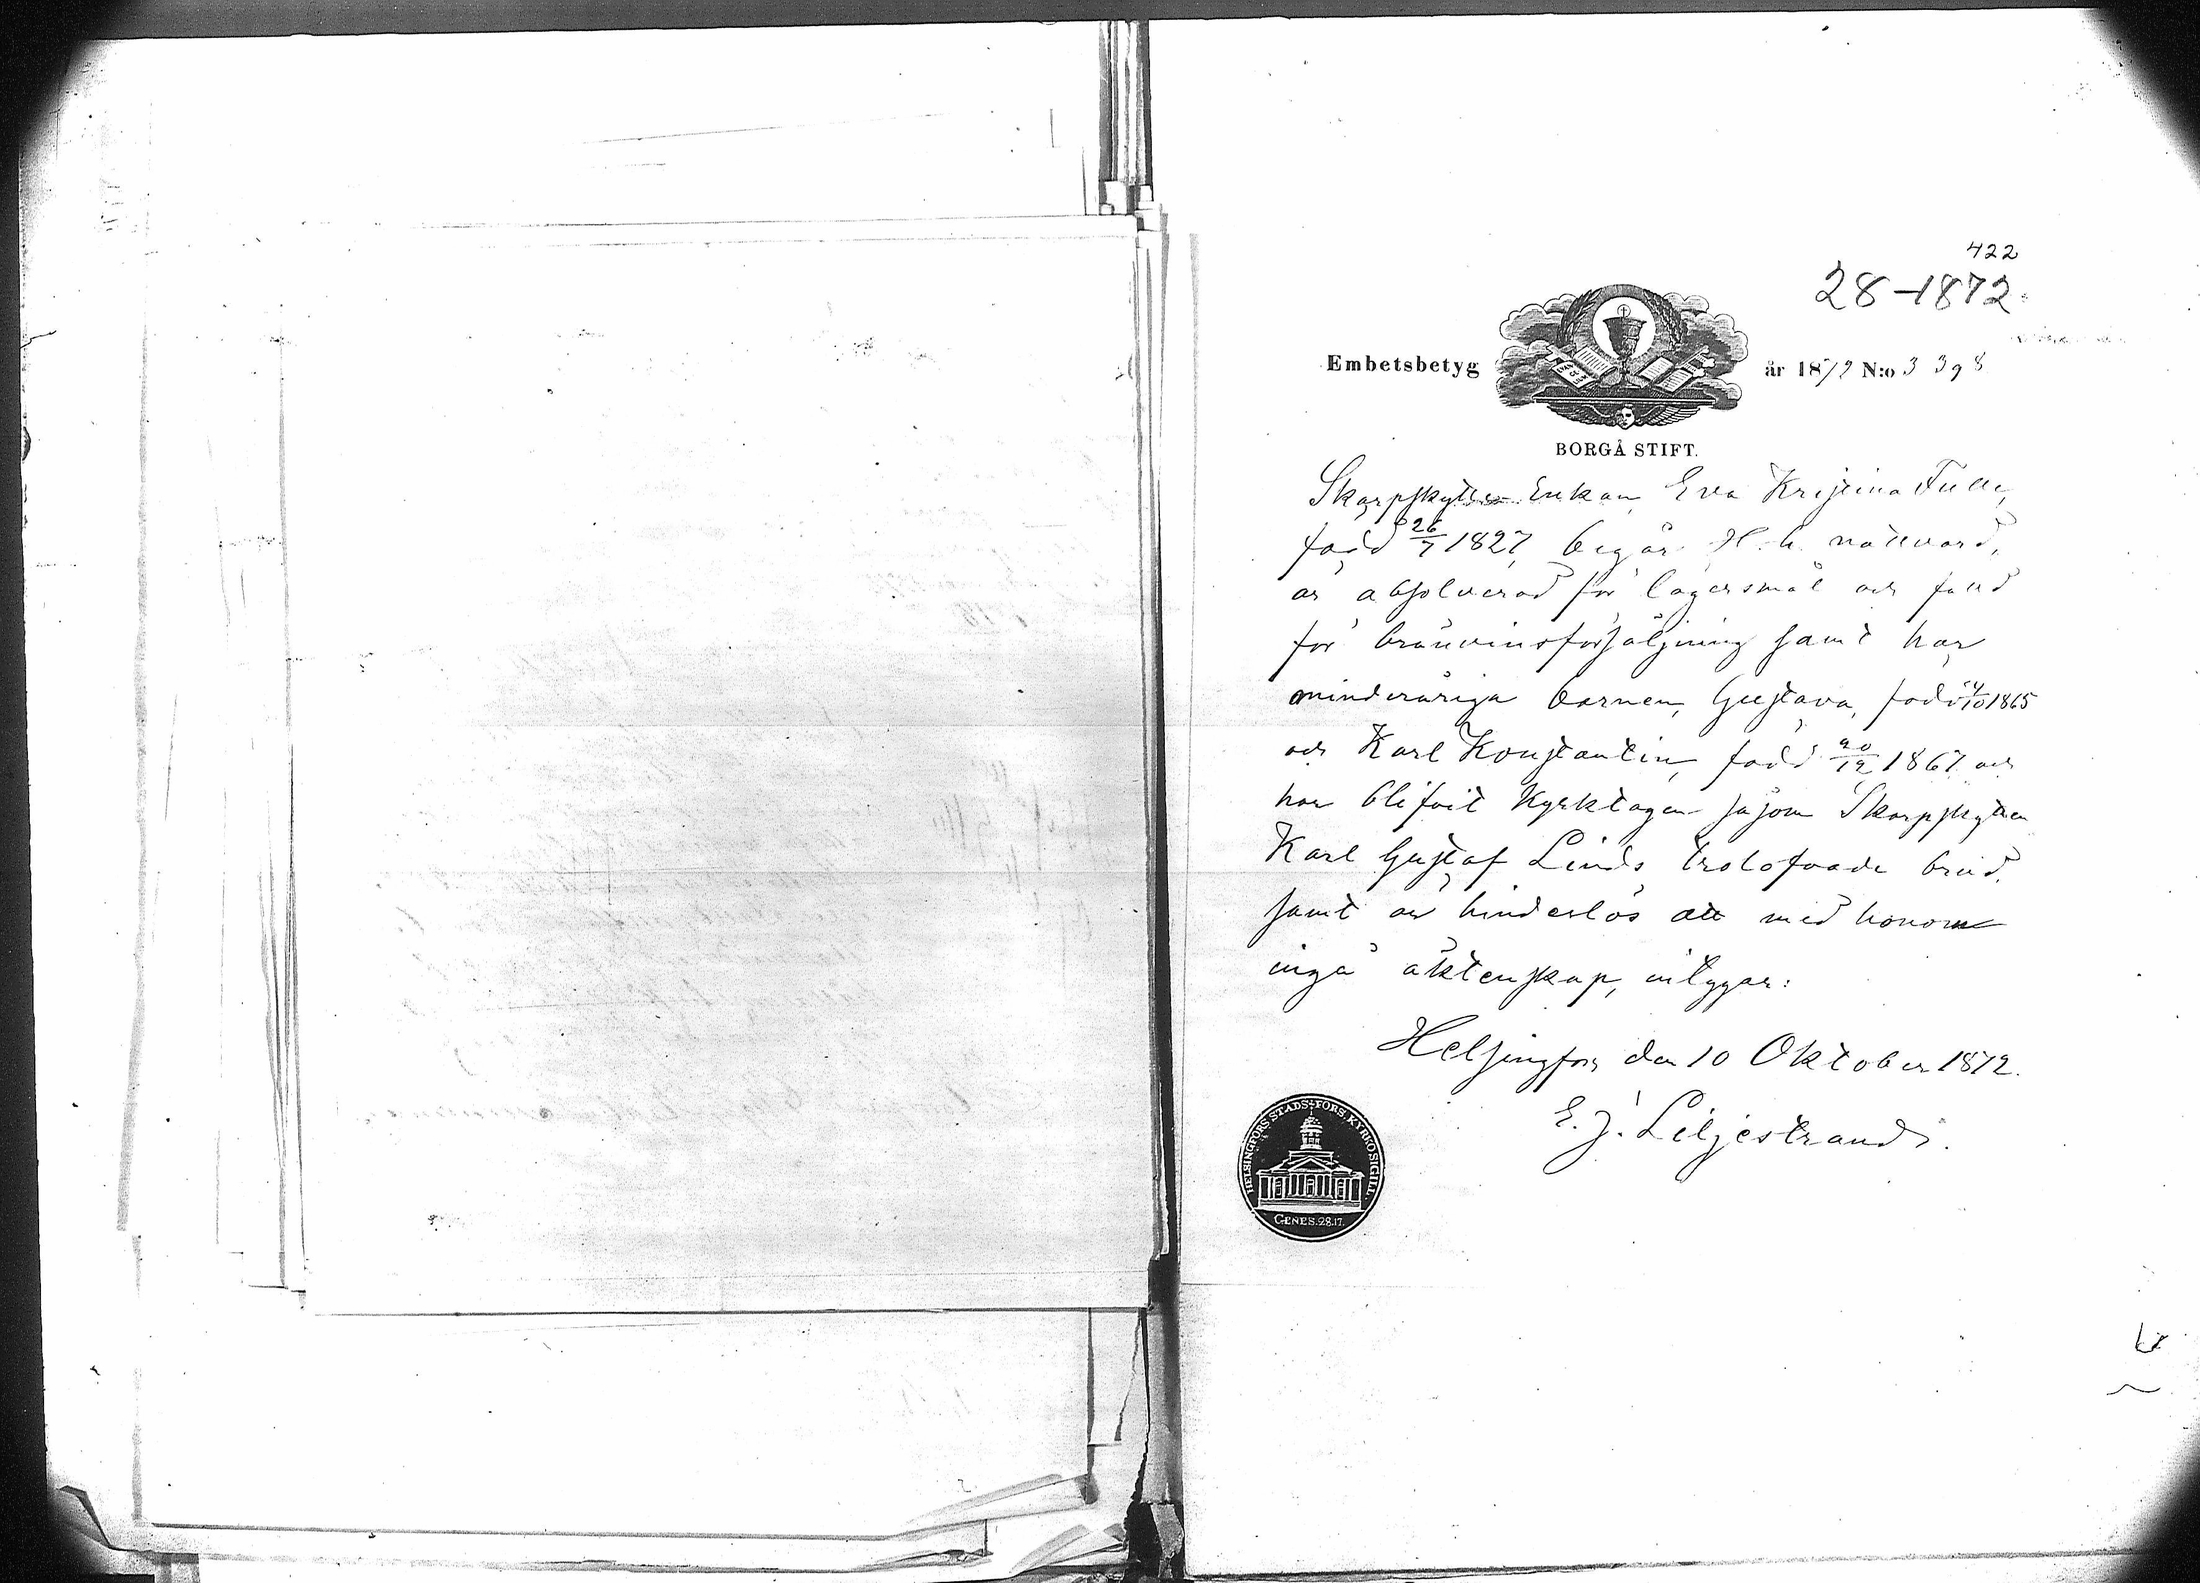 422
28-1872
Embetsbetyg år 1872 N:o 3398
BORGÅ STIFT.
Skarpskytte Enkan Eva Kristina Tulle,
född 26/7 1827, begår H. h. nattvard,
är absolverad för lägersmål och fälld
för bränvinsförsäljning samt har
minderåriga barnen, Gustava, född /10 1865
och Karl Konstantin, född 20/12 1867 och
har blifvit kyrktagen såsom Skarpskytten
Karl Gustaf Linds trolofvade brud,
samt är hinderlös att med honom
ingå äktenskap, intygar:
Helsingfors den 10 Oktober 1872.
E. J. Liljestrand.
HELSINGFORS STADS FÖRS. KYRKOSIGILL.
GENES. 28.17.